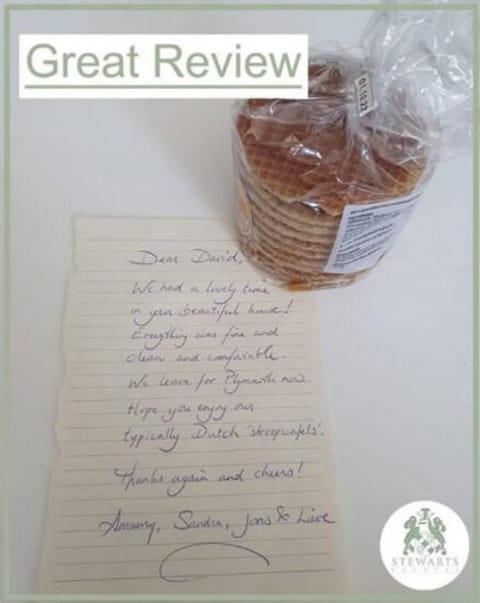 Great Review
01.10.22
Dear David,
We had a lovely time
in your beautiful house!
Everything was fine and
clean and comfortable.
We leave for Plymouth now
Hope you enjoy our
typically Dutch 'stroopwafels'.
Thanks again and cheers!
Amaury, Sandra, Joris & Lieve
STEWARTS